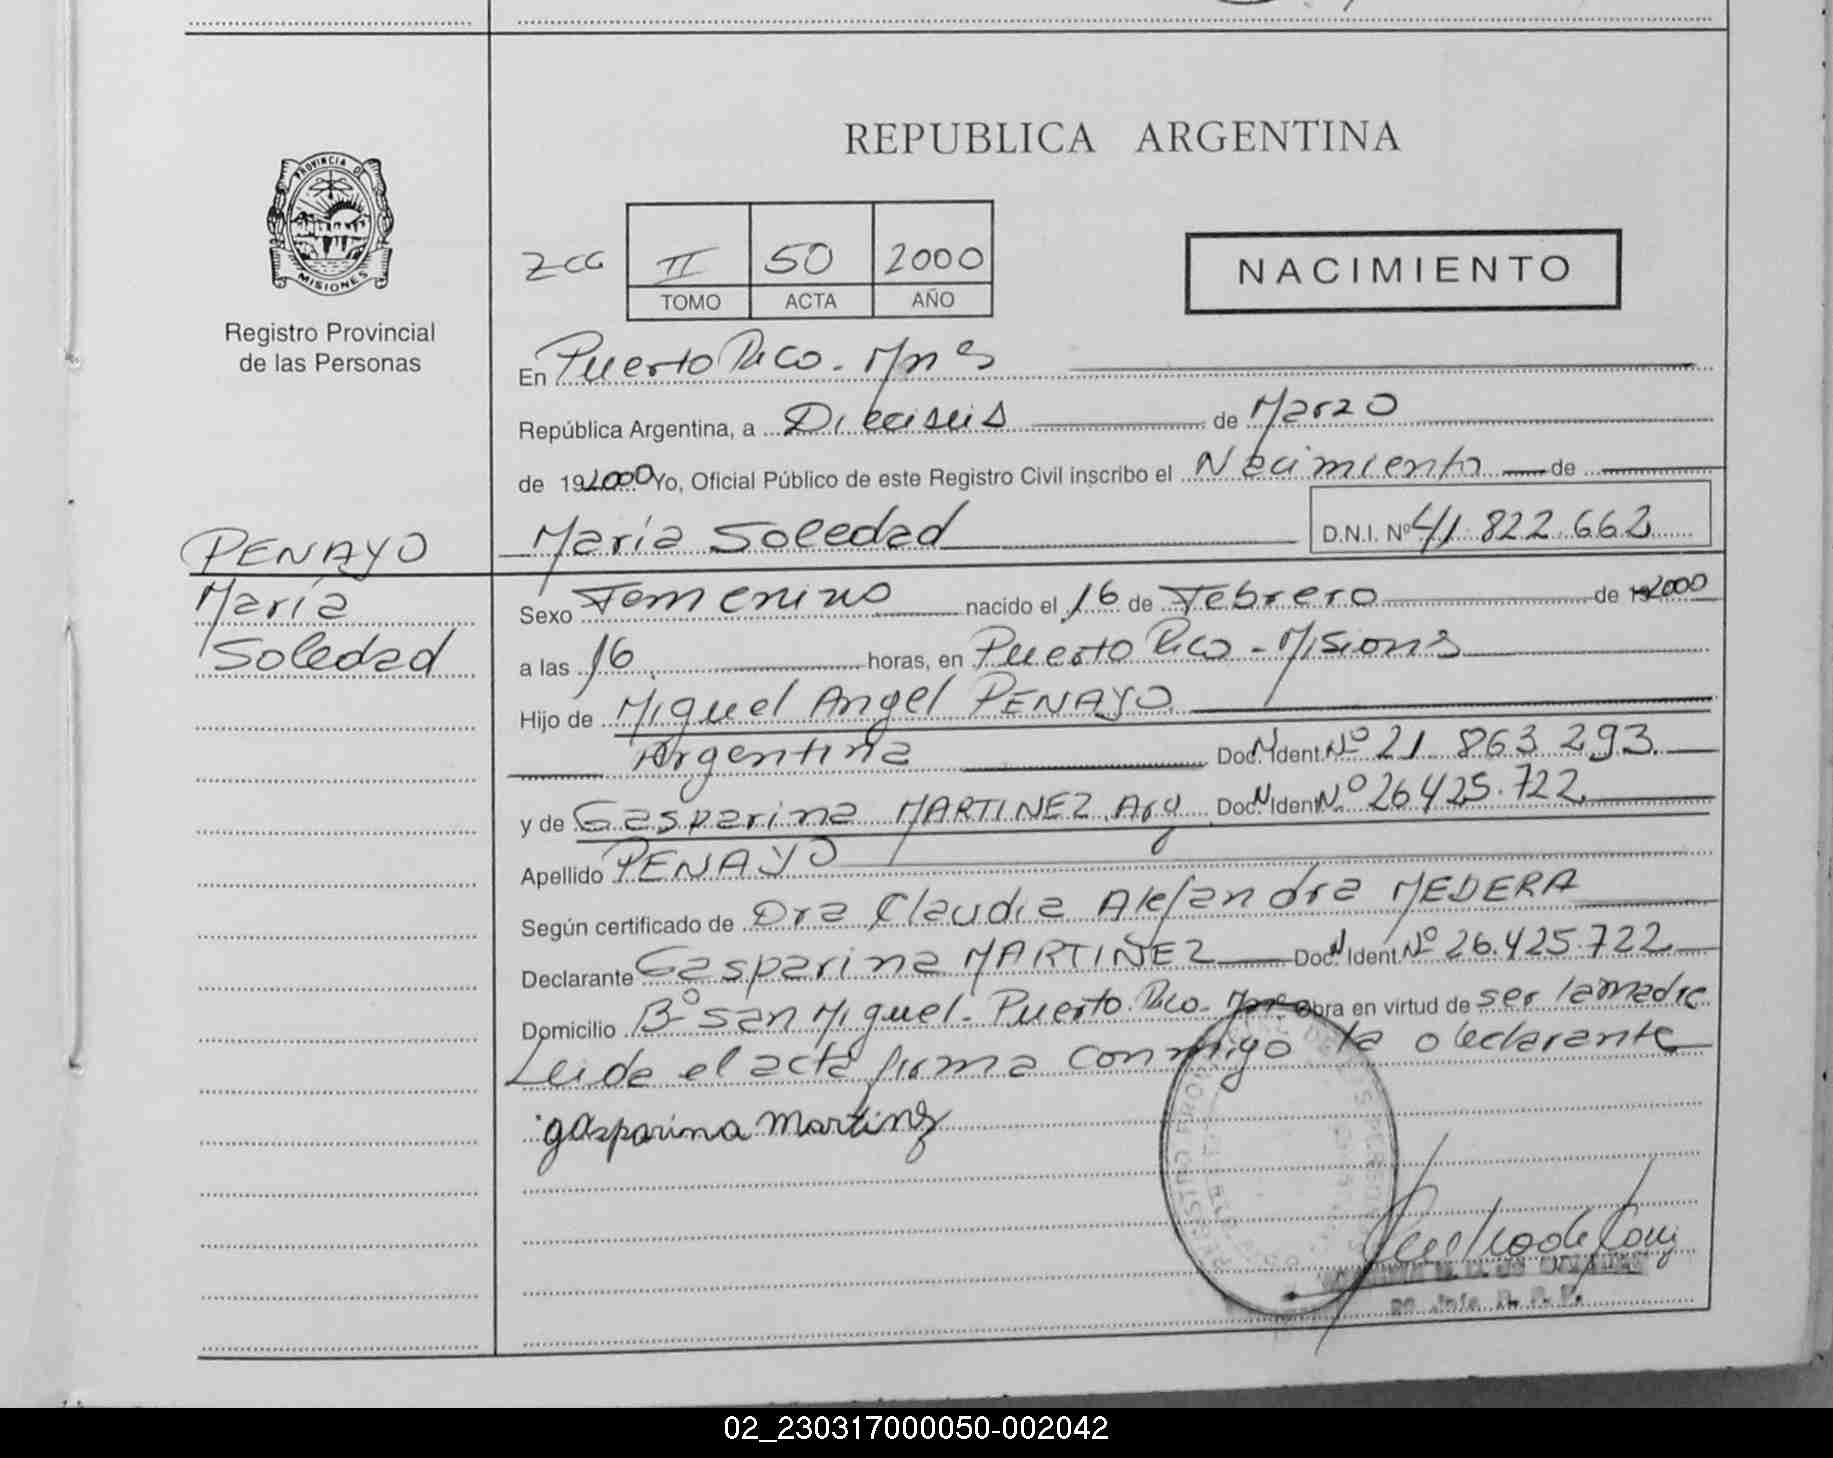 REPUBLICA ARGENTINA
PROVINCIA DE
MISIONES
Registro Provincial
de las Personas
ZCG II 50 2000
TOMO ACTA AÑO
NACIMIENTO
En Puerto Rico - Mnes
República Argentina, a Dieciseis de Marzo
de 192000 Yo, Oficial Público de este Registro Civil inscribo el Nacimiento de
María Soledad D.N.I. Nº 41.822.662
PENAYO
María
Soledad
Sexo Femenino nacido el 16 de Febrero de 2000
a las 16 horas, en Puerto Rico - Misiones
Hijo de Miguel Angel PENAYO
Argentina Doc. N Ident. Nº 21 863 293
y de Gasparina MARTINEZ Arg Doc. N Ident Nº 26425.722
Apellido PENAYO
Según certificado de Dra Claudia Alejandra MEDERA
Declarante Gasparina MARTIÑEZ Doc. N Ident. Nº 26.425.722
Domicilio Bº San Miguel - Puerto Rico - Mnes obra en virtud de ser la madre
Leida el acta firma conmigo la declarante
gasparina martinez
02_230317000050-002042